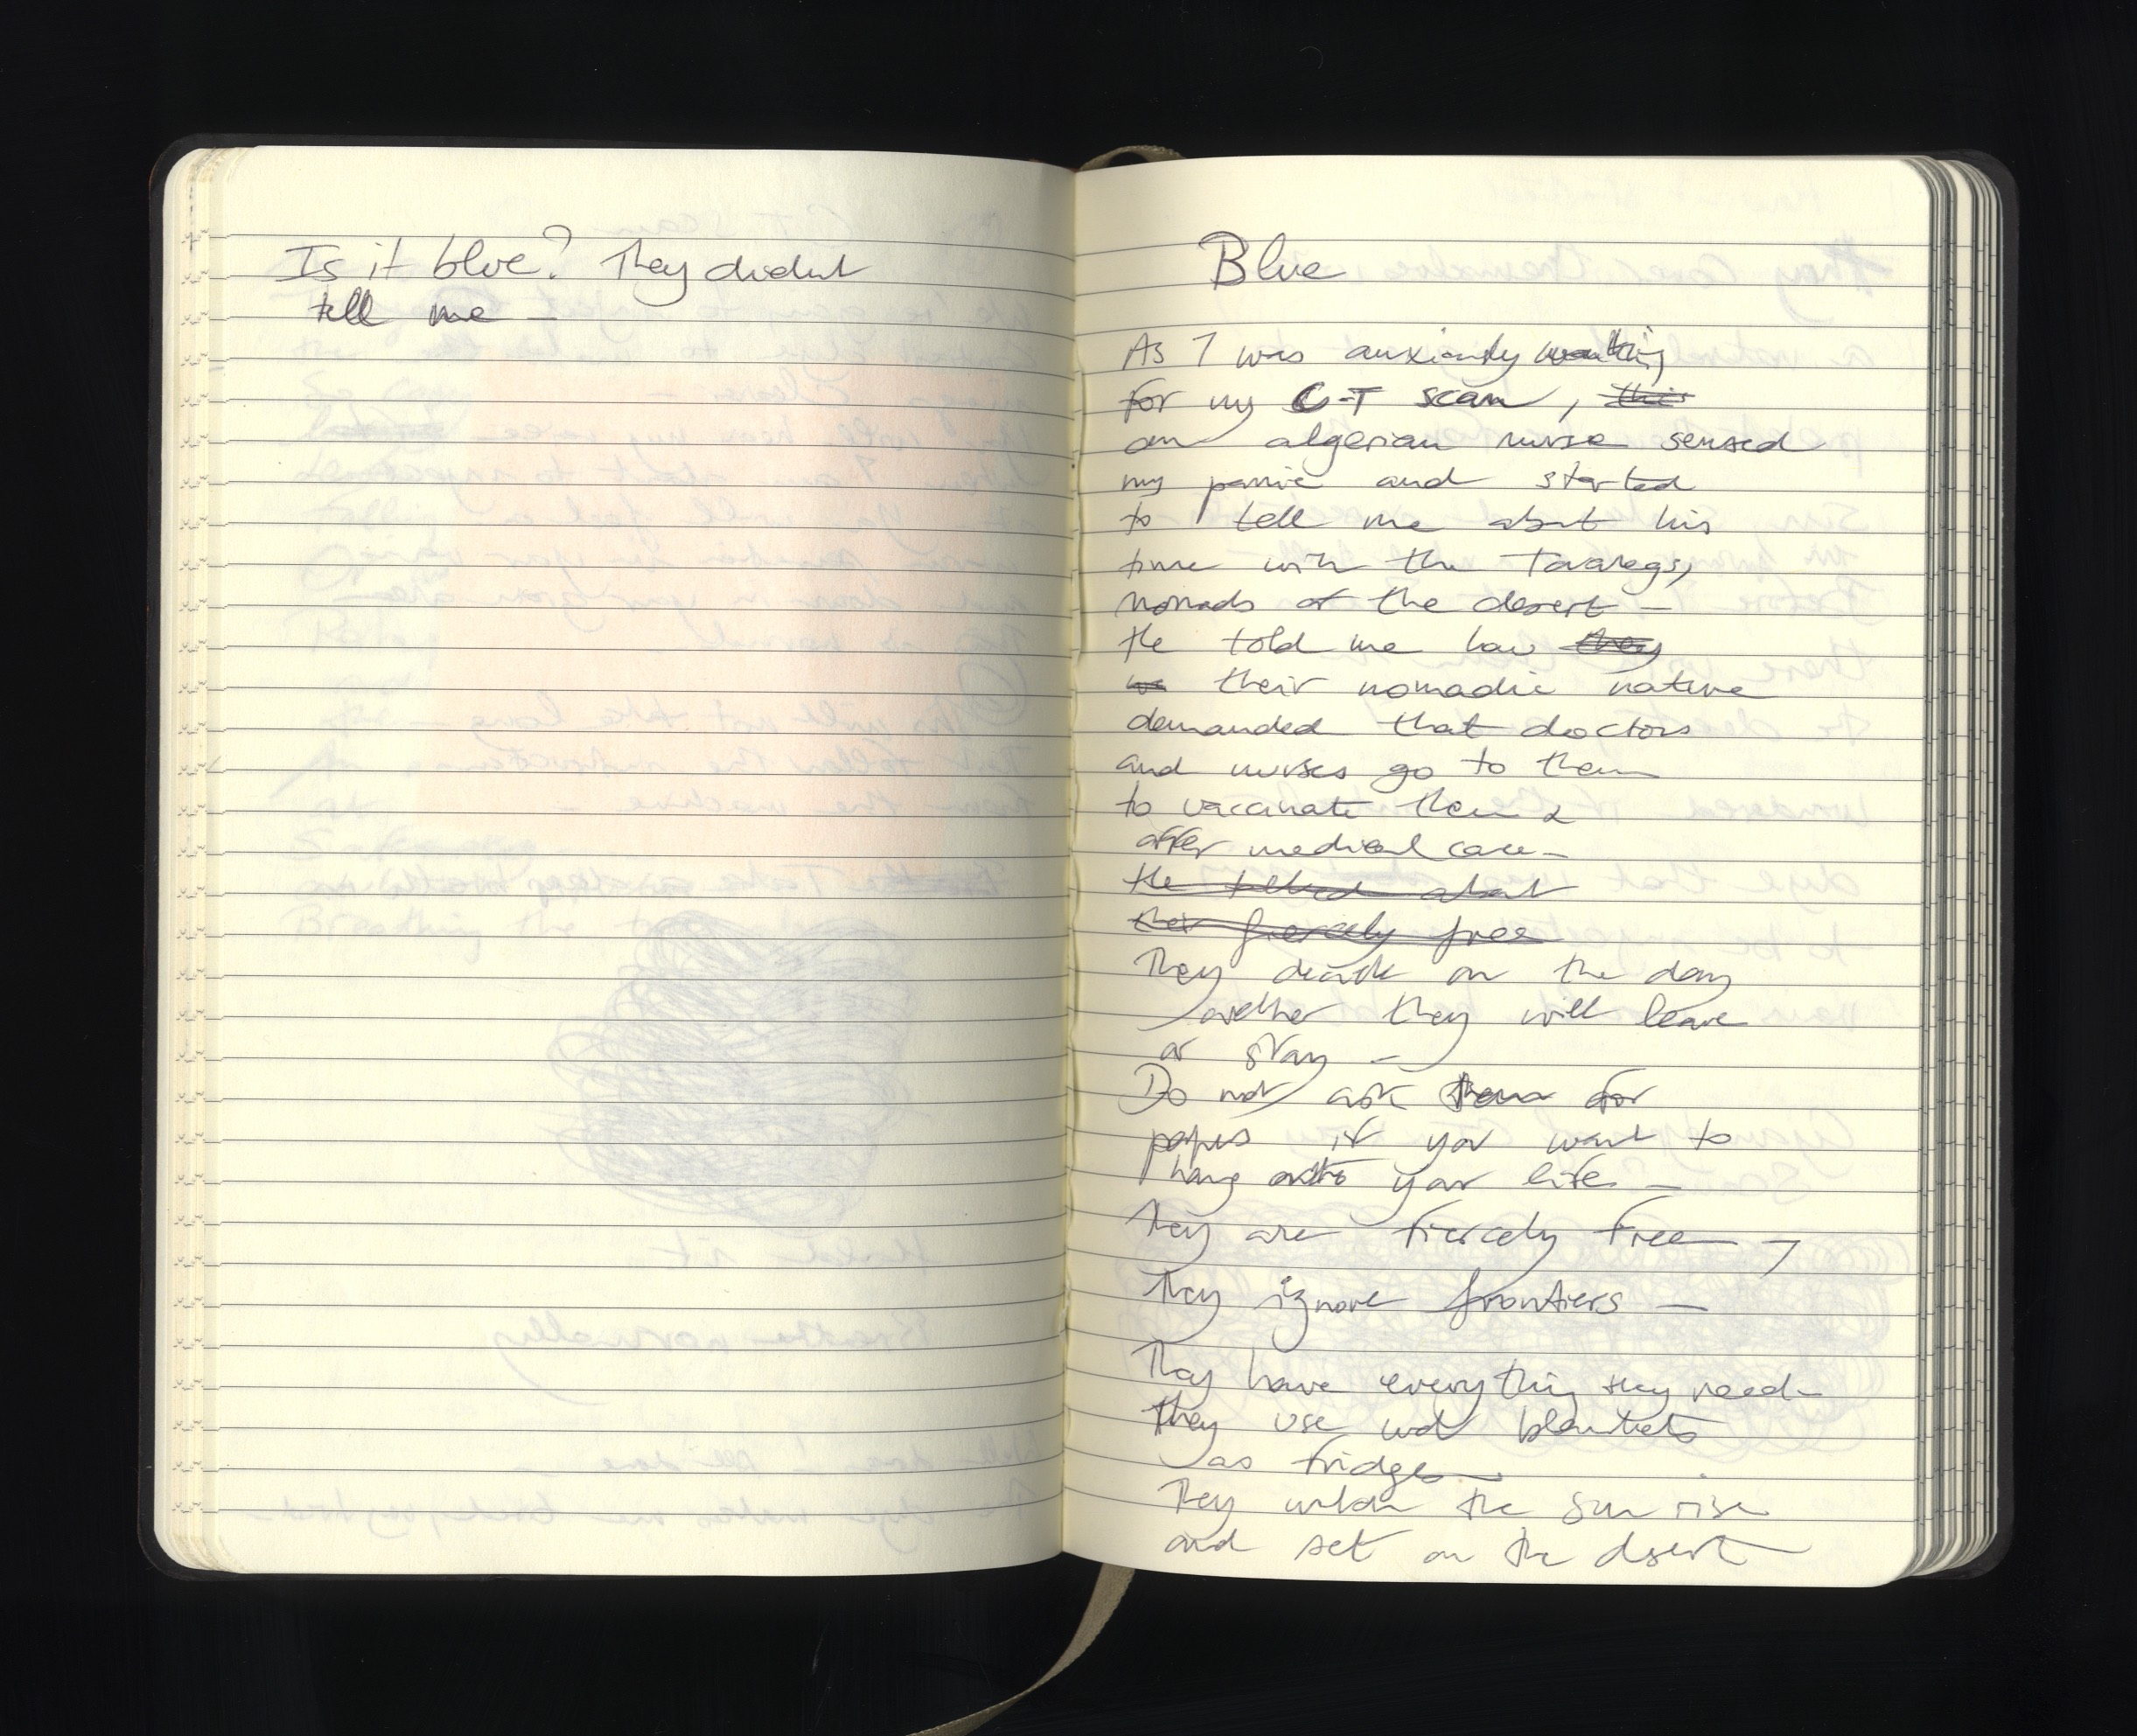 Is it blue? They didn't
tell me –
Blue
As I was anxiously waiting
for my C-T scan, this
an algerian nurse sensed
my panic and started
to tell me about his
time with the Touaregs,
nomads of the desert –
He told me how they
we their nomadic nature
demanded that doctors
and nurses go to them
to vaccinate them &
offer medical care –
He talked about
their fiercely free
They decide on the day
wether they will leave
or stay –
Do not ask them for
papers if you want to
hang onto your life –
They are fiercely free –
They ignore frontiers –
They have everything they need –
They use wet blankets
as fridges –
They watch the sun rise
and set on the desert –